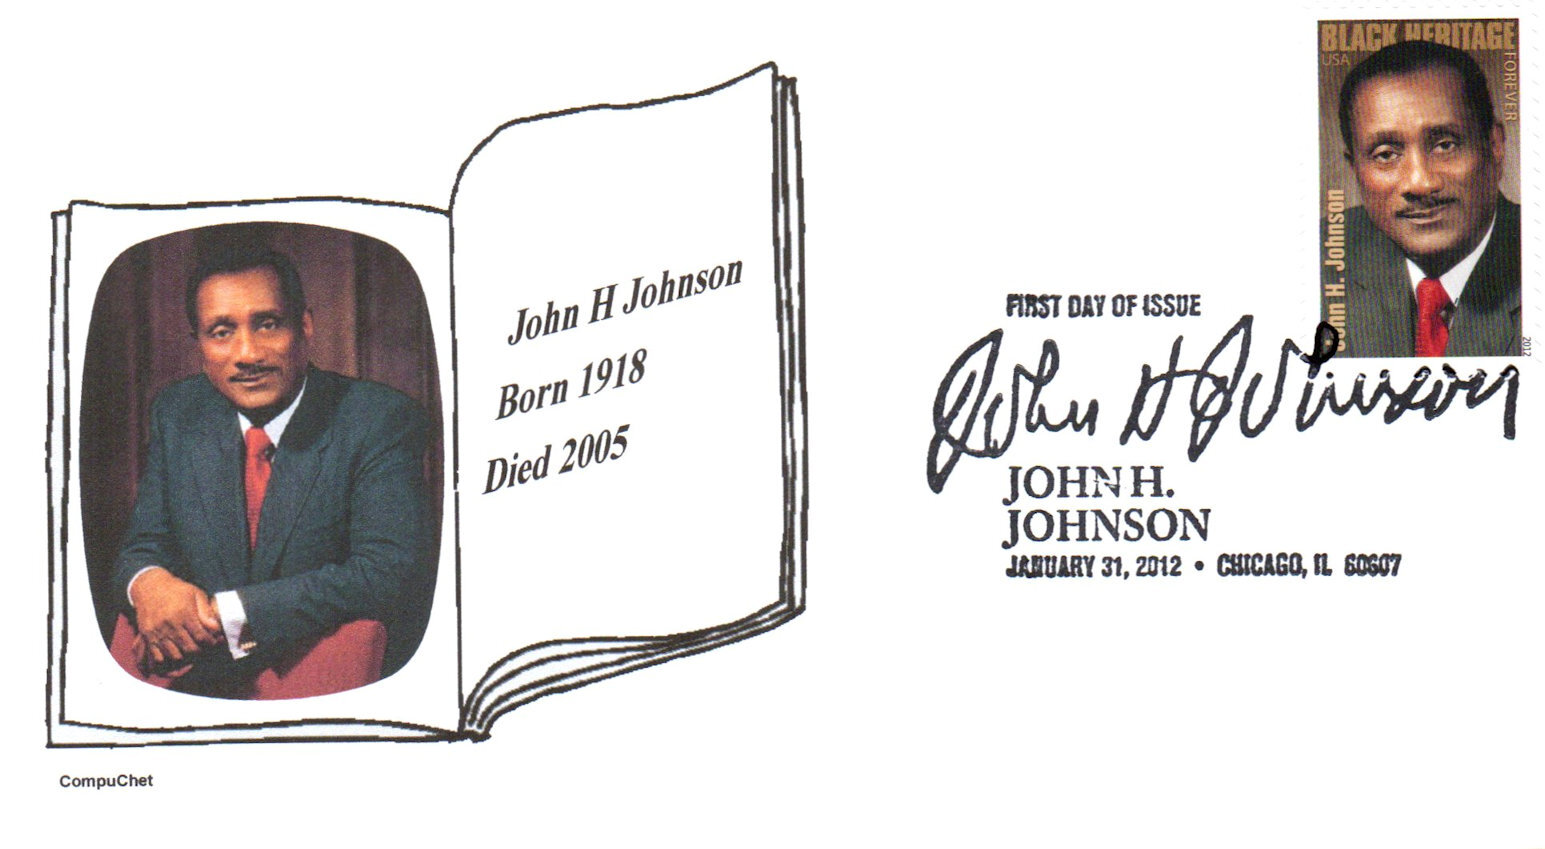 John H Johnson
Born 1918
Died 2005
CompuChet
BLACK HERITAGE
USA
FOREVER
John H. Johnson
2012
FIRST DAY OF ISSUE
John H Johnson
JOHN H.
JOHNSON
JANUARY 31, 2012 • CHICAGO, IL 60607